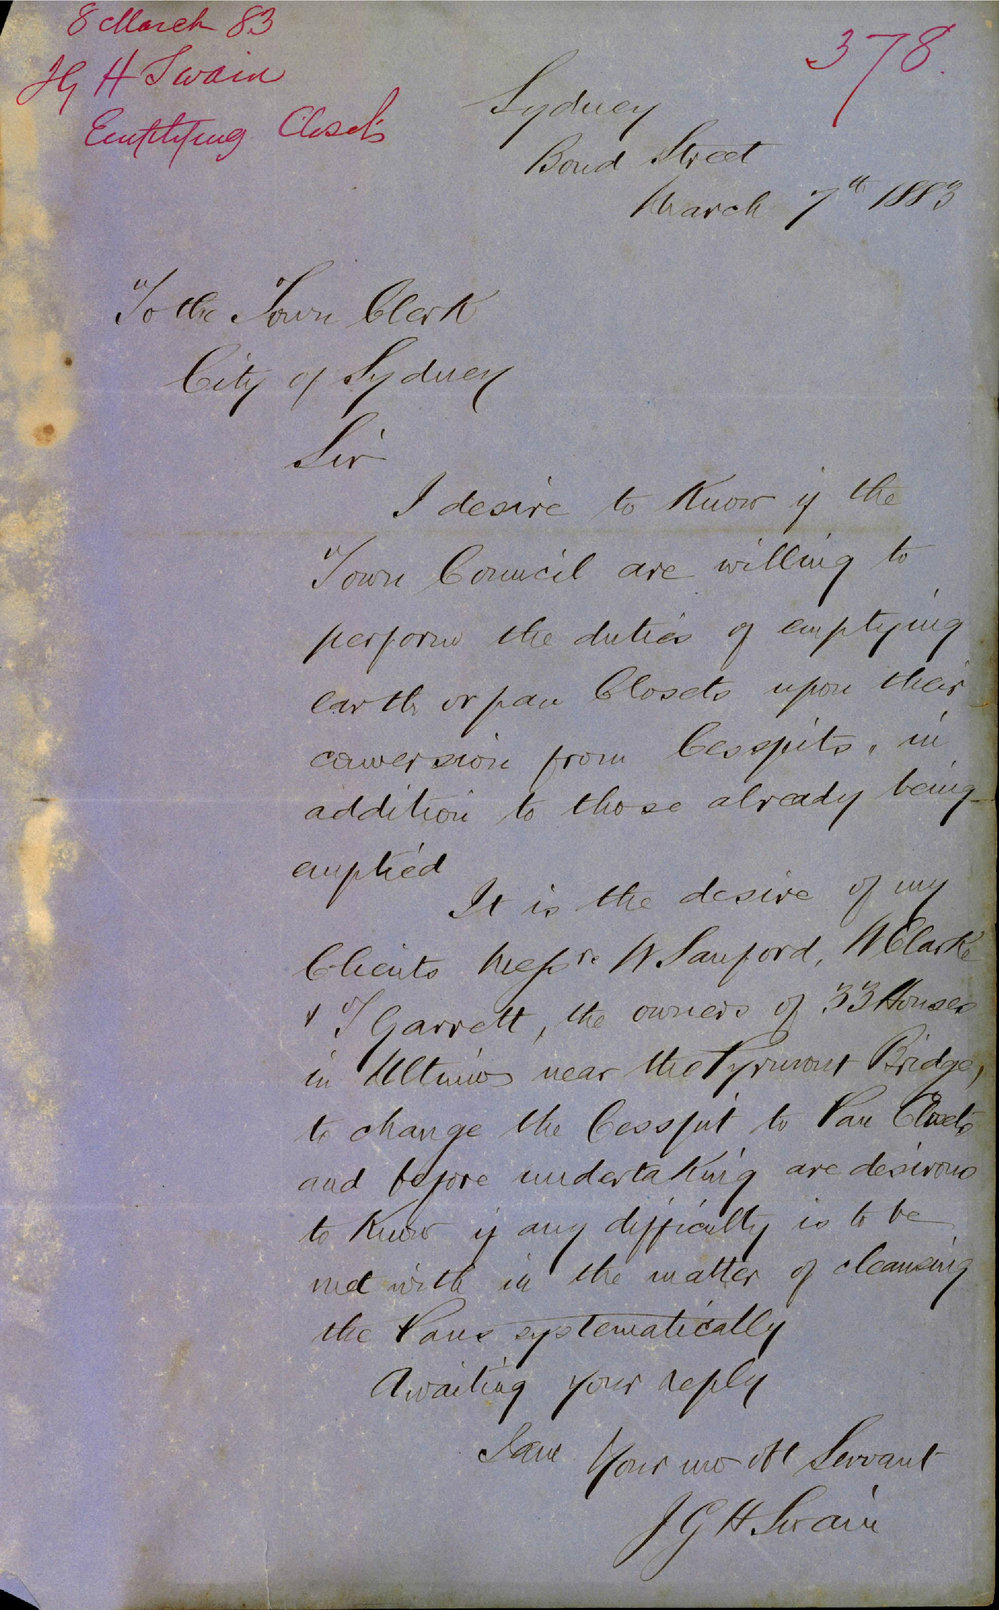 8 March 83
JG H Swain
Emptying Closets
378.
Sydney
Bond Street
March 7th 1883
To the Town Clerk
City of Sydney
Sir
I desire to Know if the
Town Council are willing to
perform the duties of emptying
earth or pan Closets upon their
conversion from Cesspits, in
addition to those already being
emptied
It is the desire of my
Clients Messrs W Sanford, W Clarke
& T Garrett, the owners of 33 Houses
in Ultimo near the Pyrmont Bridge,
to change the Cesspit to Pan Closets
and before undertaking are desirous
to Know if any difficulty is to be
met with in the matter of cleansing
the Pans systematically
Awaiting your reply
I am Your mo Obt Servant
J G H Swain